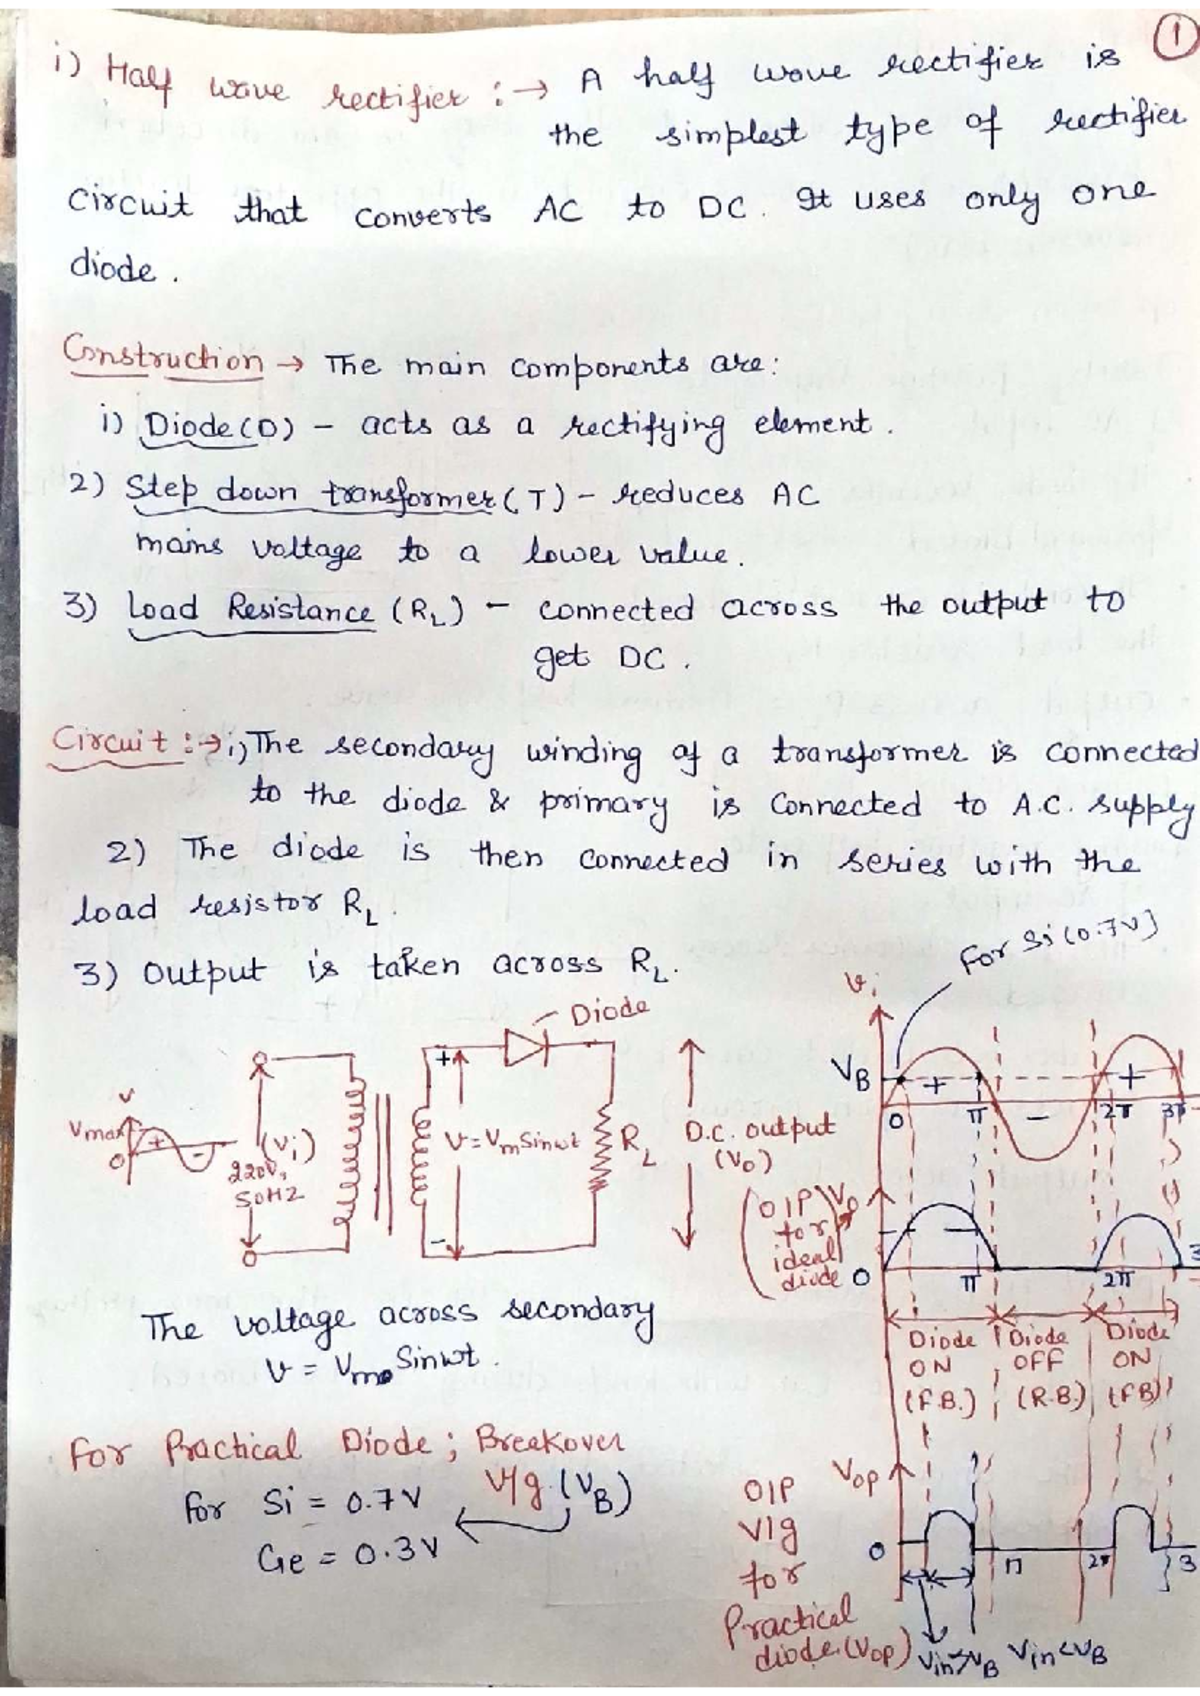 1
i) Half wave rectifier :→ A half wave rectifier is
the simplest type of rectifier
circuit that converts AC to DC. It uses only one
diode.
Construction → The main components are:
i) Diode (D) - acts as a rectifying element.
2) Step down transformer (T) - reduces AC
mains voltage to a lower value.
3) Load Resistance (RL) - connected across the output to
get DC.
Circuit :→ i) The secondary winding of a transformer is connected
to the diode & primary is connected to A.C. supply
2) The diode is then connected in series with the
load resistor RL.
3) Output is taken across RL.
For Si (0.7V)
Diode
v
Vmax
+
-
0
(Vi)
220V,
50HZ
+
V = Vm Sinωt
-
RL
D.C. output
(Vo)
vi
VB
+ - +
0 π 2π 3π
(O/P for ideal diode)
Vo
0 π 2π 3
Diode ON (F.B.)
Diode OFF (R.B.)
Diode ON (FB)
The voltage across secondary
v = Vm Sinωt.
For Practical Diode; Breakover
V/g (VB)
For Si = 0.7V
Ge = 0.3V
O/P
V/g
for
Practical
diode (Vop)
Vop
0 π 2π 3
Vin>VB Vin<VB